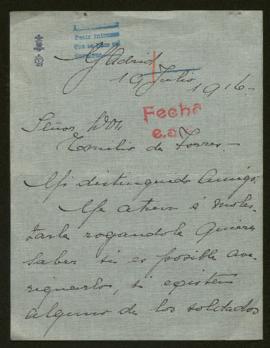 Madrid
19 Julio 1916-
Fecha
e.a.
Señor Don
Emilio de Torres-
Mi distinguido Amigo:
Me atrevo á moles-
tarle rogandole quiera
saber si es posible ave-
riguarlo, si existen
alguno de los soldados